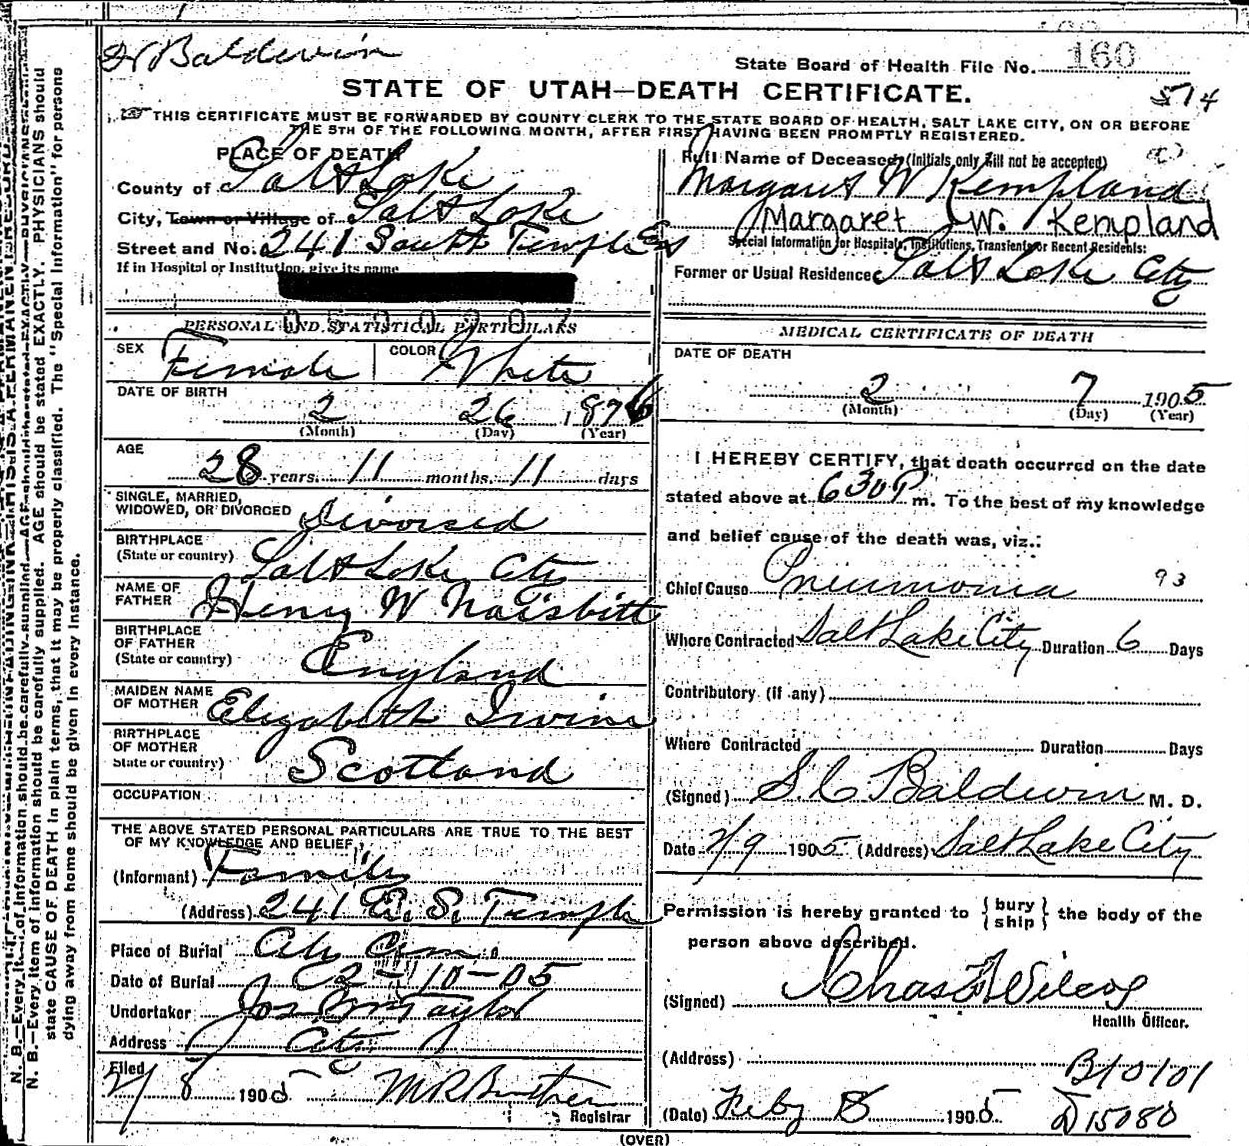 Dr Baldwin
State Board of Health File No. 160
STATE OF UTAH—DEATH CERTIFICATE.
574
☞ THIS CERTIFICATE MUST BE FORWARDED BY COUNTY CLERK TO THE STATE BOARD OF HEALTH, SALT LAKE CITY, ON OR BEFORE
THE 5TH OF THE FOLLOWING MONTH, AFTER FIRST HAVING BEEN PROMPTLY REGISTERED.
PLACE OF DEATH
County of Salt Lake
City, Town or Village of Salt Lake
Street and No. 241 South Temple East
If in Hospital or Institution, give its name
PERSONAL AND STATISTICAL PARTICULARS
SEX Female COLOR White
DATE OF BIRTH
2 26 1876
(Month) (Day) (Year)
AGE
28 years. 11 months. 11 days
SINGLE, MARRIED,
WIDOWED, OR DIVORCED Divorsed
BIRTHPLACE
(State or country) Salt Lake City
NAME OF
FATHER Henry W Naisbitt
BIRTHPLACE
OF FATHER
(State or country) England
MAIDEN NAME
OF MOTHER Elizabeth Irvine
BIRTHPLACE
OF MOTHER
State or country) Scotland
OCCUPATION
THE ABOVE STATED PERSONAL PARTICULARS ARE TRUE TO THE BEST
OF MY KNOWLEDGE AND BELIEF,
(Informant) Family
(Address) 241 E. S. Temple
Place of Burial City Cem
Date of Burial 2-10-05
Undertaker Jos Wm Taylor
Address City
Filed
2/8 1905
Registrar
Full Name of Deceased, (Initials only will not be accepted)
Margaret W Kempland
Margaret W. Kempland
Special Information for Hospitals, Institutions, Transients or Recent Residents:
Former or Usual Residence Salt Lake City
MEDICAL CERTIFICATE OF DEATH
DATE OF DEATH
2 7 1905
(Month) (Day) (Year)
I HEREBY CERTIFY, that death occurred on the date
stated above at 630 P m. To the best of my knowledge
and belief cause of the death was, viz.:
Chief Cause Pneumonia 93
Where Contracted Salt Lake City Duration 6 Days
Contributory (if any)
Where Contracted Duration Days
(Signed) S C Baldwin M. D.
Date 2/9 1905 (Address) Salt Lake City
Permission is hereby granted to { bury
ship } the body of the
person above described.
(Signed) Chas F Wilcox
Health Officer.
(Address)
B10101
(Date) Feby 8 1905 D15080
(OVER)
N. B.—Every item of information should be carefully supplied. AGE should be stated EXACTLY. PHYSICIANS should
state CAUSE OF DEATH in plain terms, that it may be properly classified. The "Special Information" for persons
dying away from home should be given in every instance.